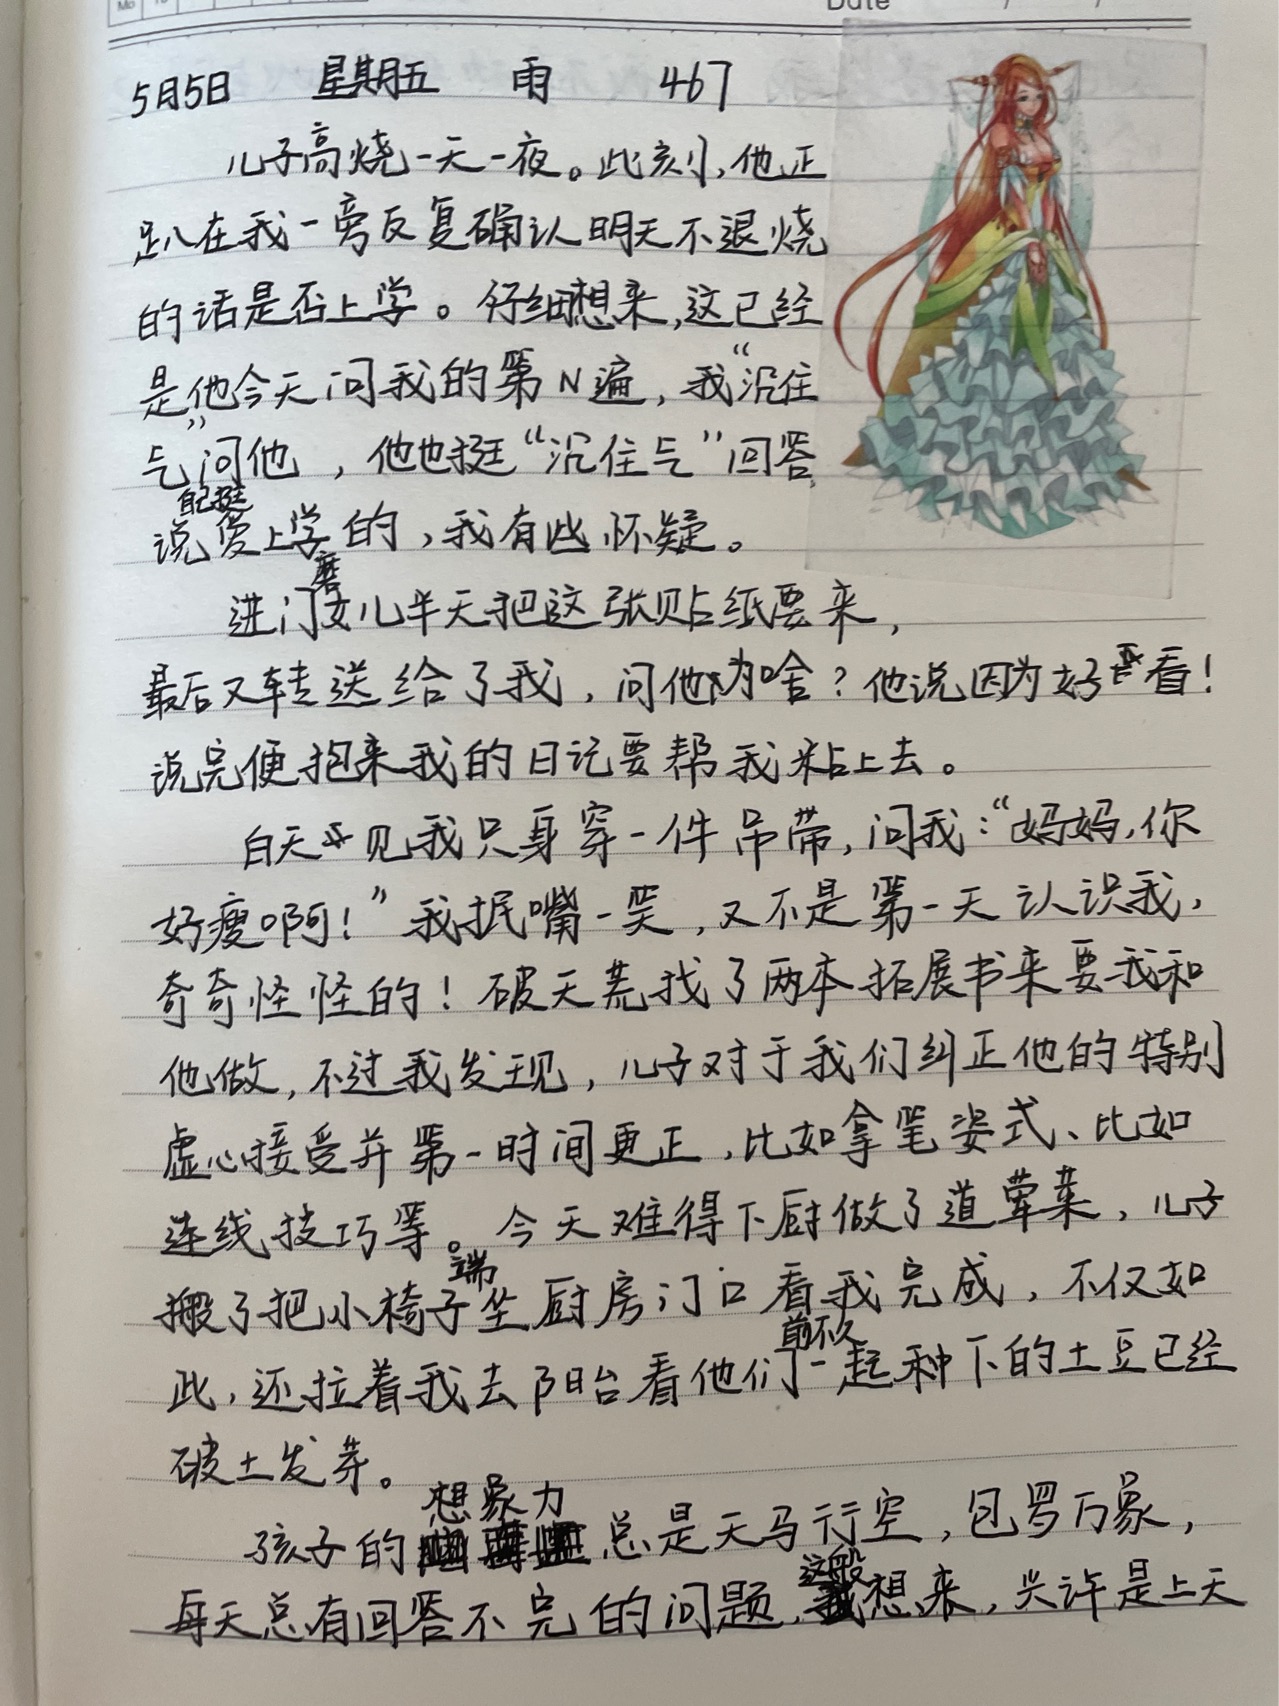 Mo
Date / /
5月5日 星期五 雨 467
儿子高烧一天一夜。此刻,他正
趴在我一旁反复确认明天不退烧
的话是否上学。仔细想来,这已经
是他今天问我的第N遍,我“沉住
气”问他,他也挺“沉住气”回答
说自己挺爱上学的,我有些怀疑。
进门磨女儿半天把这张贴纸要来,
最后又转送给了我,问他为啥?他说因为好看!
说完便抱来我的日记要帮我粘上去。
白天见我只身穿一件吊带,问我:“妈妈,你
好瘦啊!”我抿嘴一笑,又不是第一天认识我,
奇奇怪怪的!破天荒找了两本拓展书来要我和
他做,不过我发现,儿子对于我们纠正他的特别
虚心接受并第一时间更正,比如拿笔姿式、比如
连线技巧等。今天难得下厨做了道荤菜,儿子
搬了把小椅子端坐厨房门口看我完成,不仅如
此,还拉着我去阳台看他们前不久一起种下的土豆已经
破土发芽。
孩子的想象力总是天马行空,包罗万象,
每天总有回答不完的问题,这般想来,兴许是上天